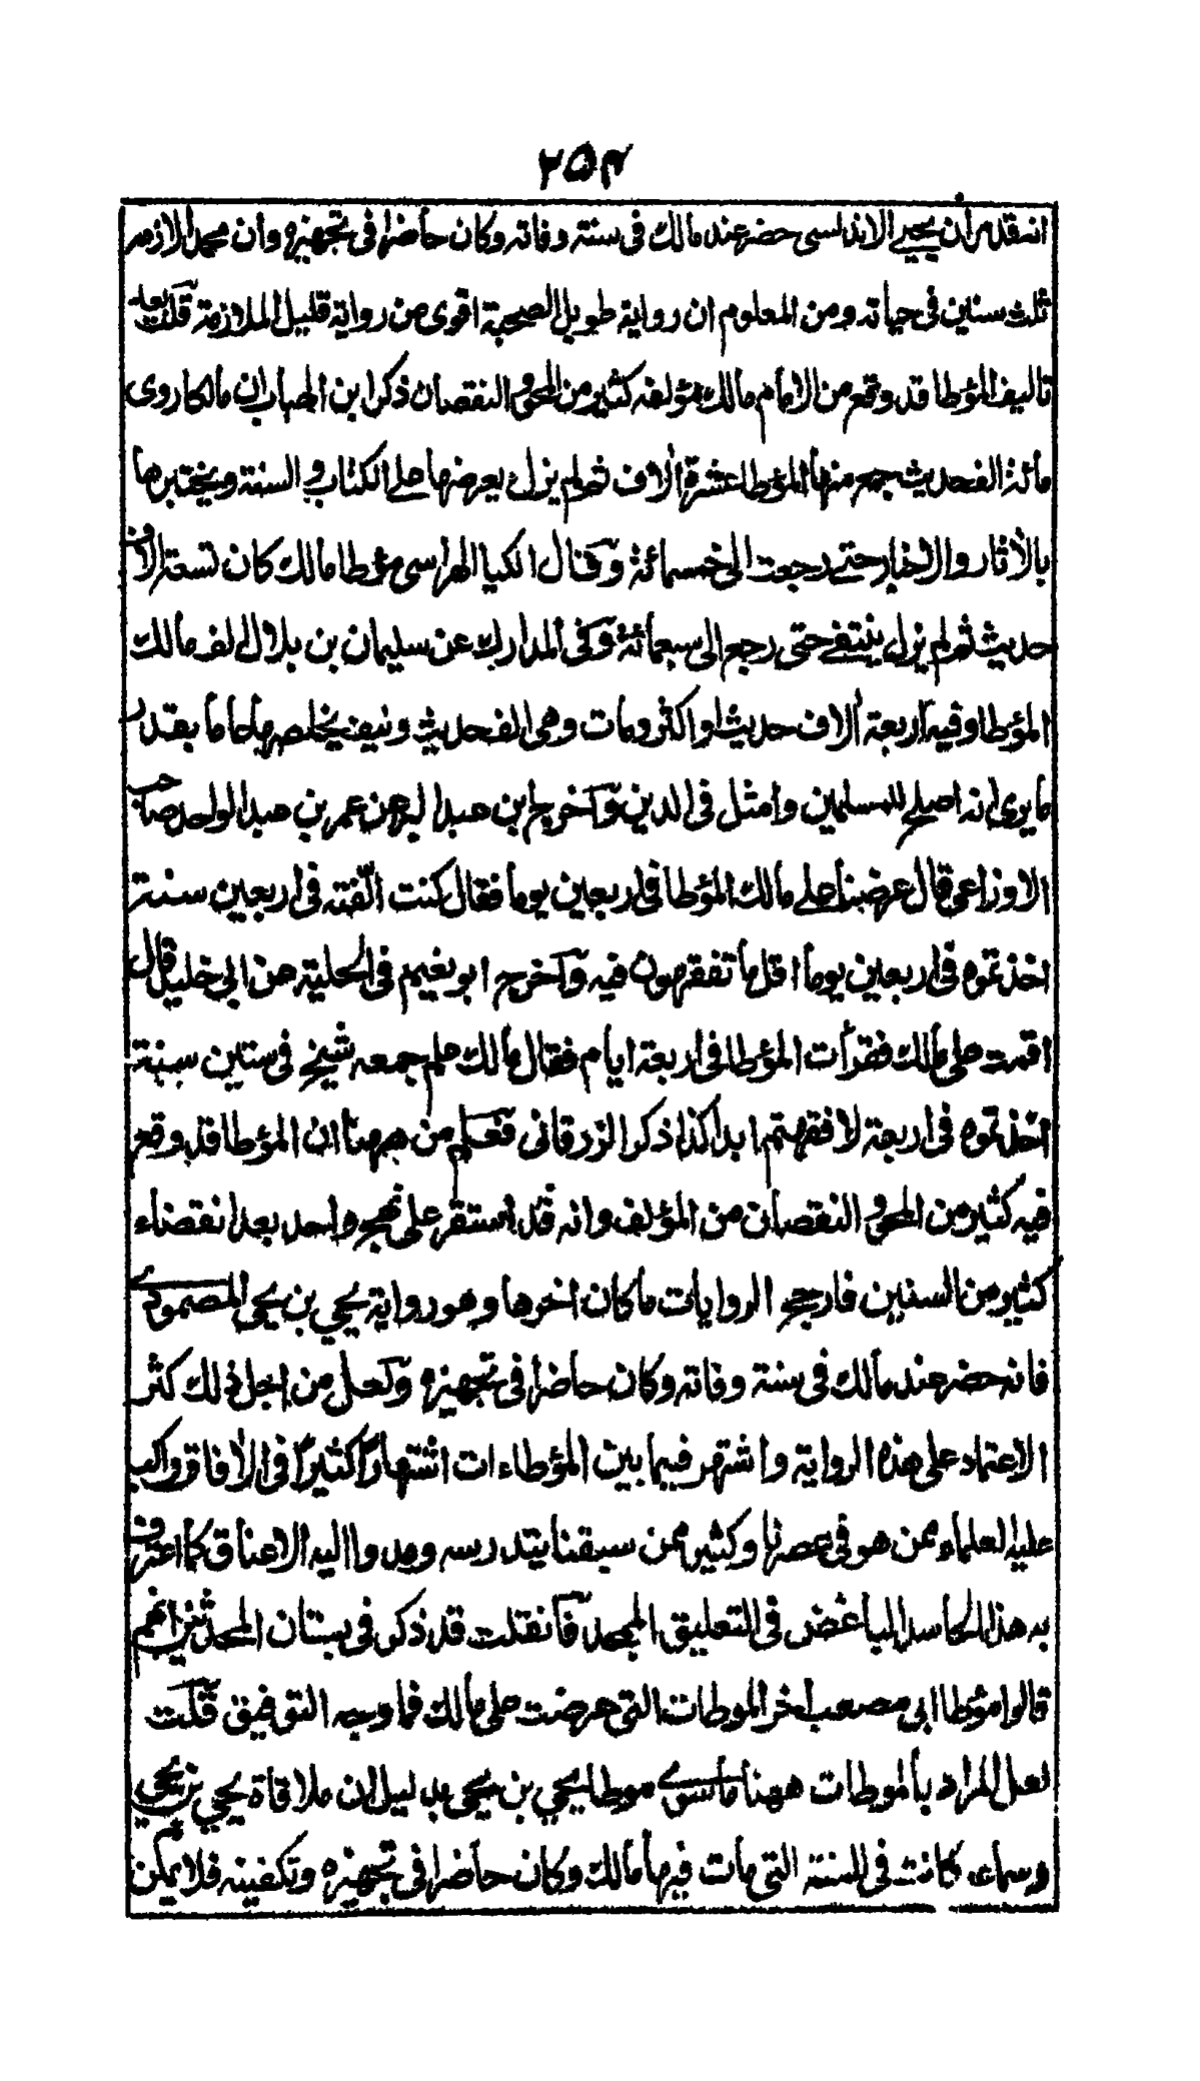 ٢٥٤
انه قد مر ان يحيى الاندلسى حضر عند مالك فى سنة وفاته وكان حاضرا فى تجهيزه وان محمدا لازمه
ثلث سنين فى حياته ومن المعلوم ان رواية طويل الصحبة اقوى من رواية قليل الملازمة قلت بعد
تاليف المؤطا قد وقع من الامام مالك مؤلفه كثير من المحو والنقصان ذكر ابن الهباب ان مالكا روى
مائة الف حديث جمع منها المؤطا عشرة الاف ثم لم يزل يعرضها على الكتاب والسنة ويختبرها
بالاثار والاخبار حتى رجعت الى خمسمائة وقال الكيا الهراسى مؤطا مالك كان تسعة الاف
حديث ثم لم يزل ينتقى حتى رجع الى سبعمائة وفى المدارك عن سليمان بن بلال الف مالك
المؤطا وفيه اربعة الاف حديث او اكثر ومات وهى الف حديث ونيف يخلصها عاما عاما بقدر
ما يرى انه اصلح للمسلمين وامثل فى الدين واخرج ابن عبد البر عن عمر بن عبد الواحد صاحب
الاوزاعى قال عرضنا على مالك المؤطا فى اربعين يوما فقال كنت الّفته فى اربعين سنة
اخذتموه فى اربعين يوما اقل ما تفقهون فيه واخرج ابو نعيم فى الحلية عن ابى خليل قال
اقمت على مالك فقرأت المؤطا فى اربعة ايام فقال مالك علم جمعه شيخ فى ستين سنة
اخذتموه فى اربعة لا فقهتم ابدا كذا ذكر الزرقانى فعلم من ههنا ان المؤطا قد وقع
فيه كثير من المحو والنقصان من المؤلف وانه قد استقر على نهج واحد بعد انقضاء
كثير من السنين فارجح الروايات ما كان اخرها وهو رواية يحيى بن يحيى المصمودى
فانه حضر عند مالك فى سنة وفاته وكان حاضرا فى تجهيزه ولعل من اجل ذلك كثر
الاعتماد على هذه الرواية واشتهر فيما بين المؤطاءات اشتهارًا كثيرًا فى الافاق واكب
عليه العلماء ممن هو فى عصرنا وكثير ممن سبقنا بتدريسه ومدوا اليه الاعناق كما اعترف
به هذا الحاسد الباغض فى التعليق الممجد فانقلت قد ذكر فى بستان المحدثين انهم
قالوا مؤطا ابى مصعب اخر الموطات التى عرضت على مالك فما وجه التوفيق قلت
لعل المراد بالموطات ههنا ما سوى موطا يحيى بن يحيى بدليل ان ملاقاة يحيى بن يحيى
وسماعه كانت فى السنة التى مات فيها مالك وكان حاضرا فى تجهيزه وتكفينه فلا يمكن